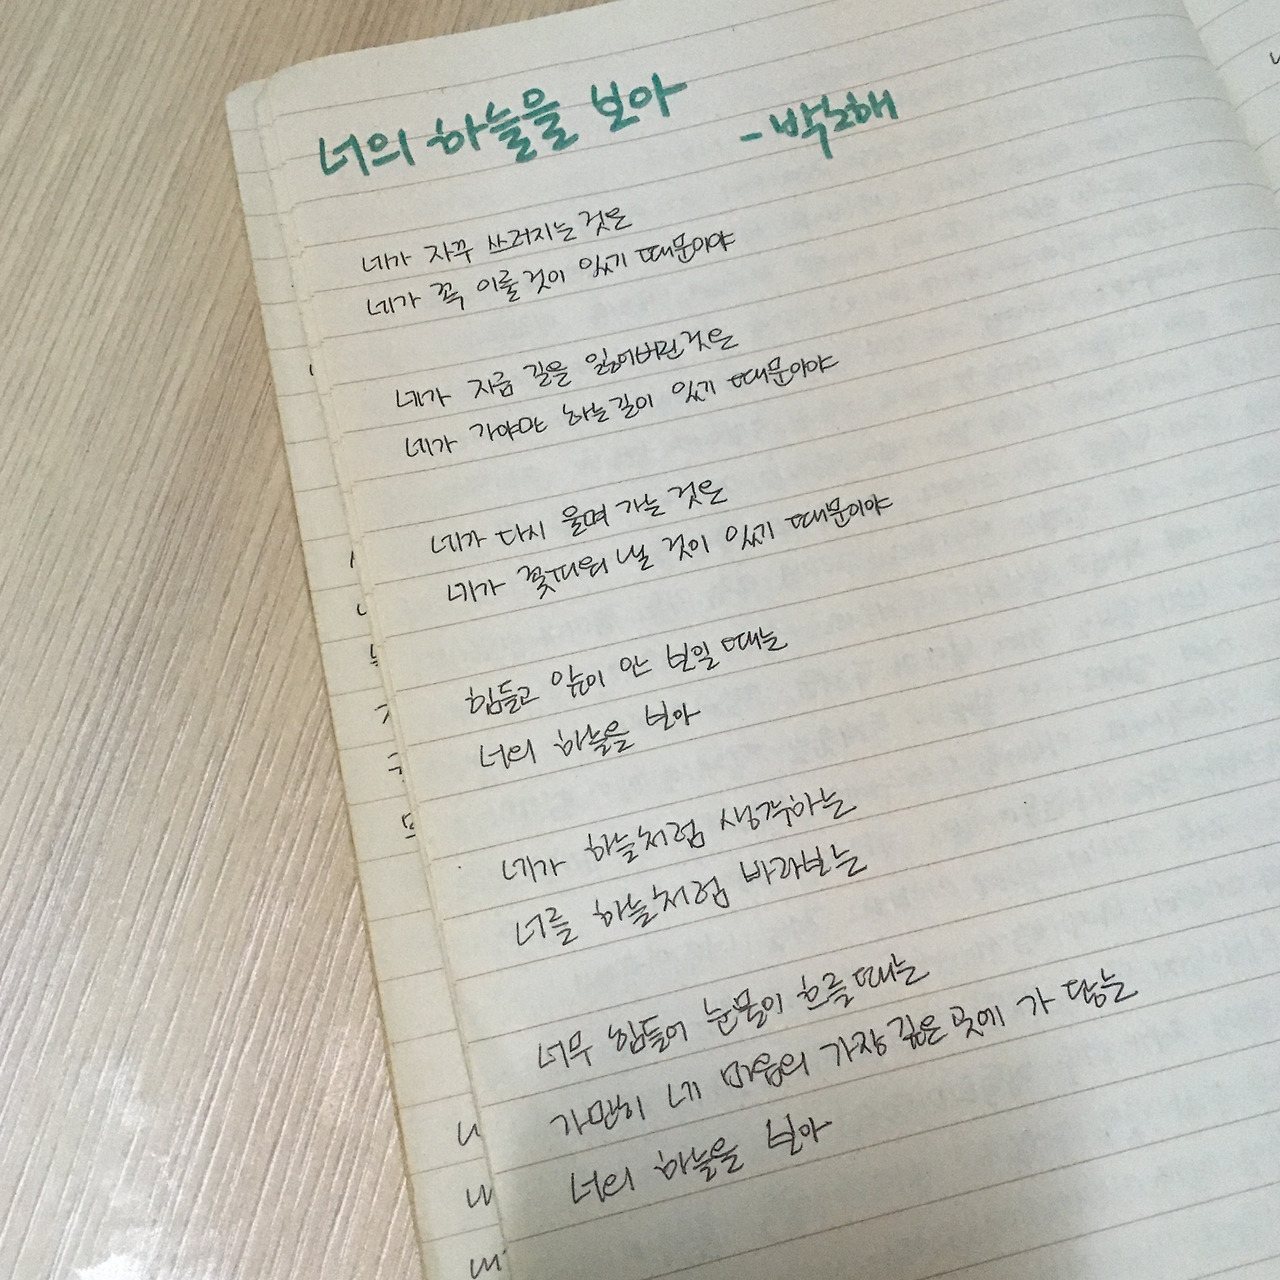 너의 하늘을 보아
- 박노해
네가 자꾸 쓰러지는 것은
네가 꼭 이룰 것이 있기 때문이야
네가 지금 길을 잃어버린 것은
네가 가야만 하는 길이 있기 때문이야
네가 다시 울며 가는 것은
네가 꽃피워 낼 것이 있기 때문이야
힘들고 앞이 안 보일 때는
너의 하늘을 보아
네가 하늘처럼 생각하는
너를 하늘처럼 바라보는
너무 힘들어 눈물이 흐를 때는
가만히 네 마음의 가장 깊은 곳에 가 닿는
너의 하늘을 보아